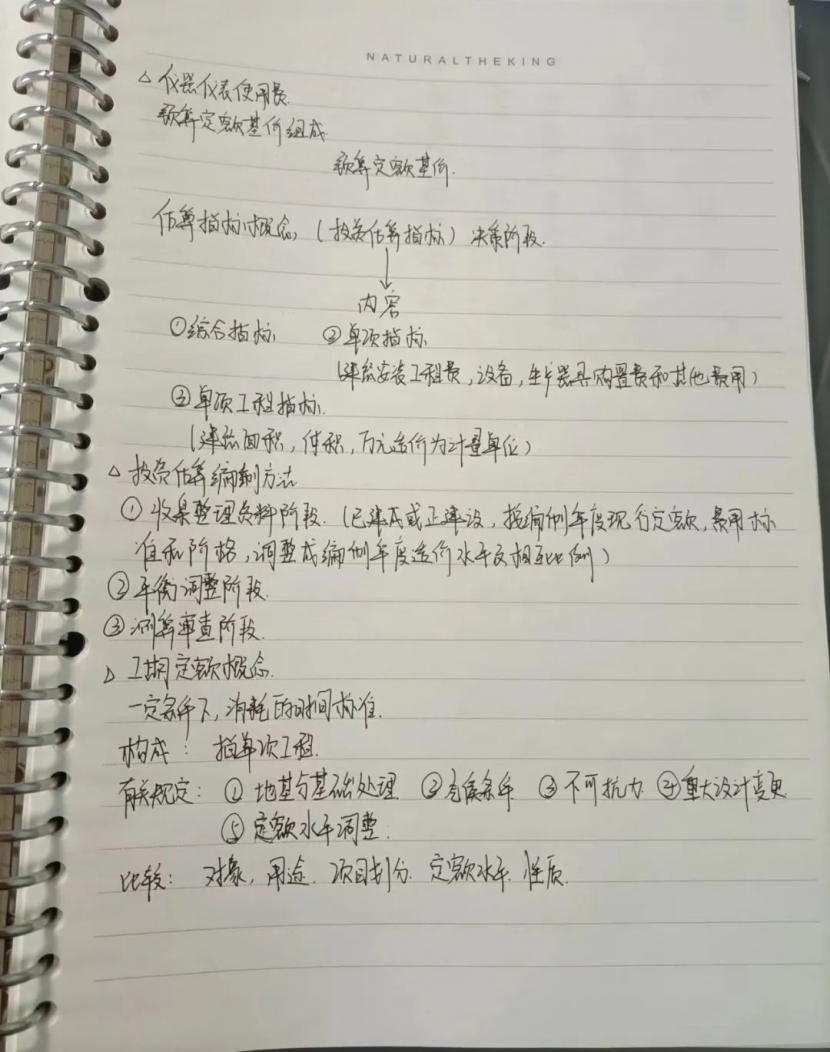 NATURALTHEKING
△ 仪器仪表使用费.
预算定额基价组成
预算定额基价.
估算指标概念, (投资估算指标) 决策阶段.
内容
①综合指标 ②单项指标
(建筑安装工程费, 设备, 生产器具购置费和其他费用)
③单项工程指标.
(建筑面积, 体积, 万元造价为计量单位)
△ 投资估算编制方法
① 收集整理资料阶段. (已建成或正建设, 按编制年度现行定额, 费用标
准和价格, 调整成编制年度造价水平及相互比例)
②平衡调整阶段.
③测算审查阶段.
△ 工期定额概念.
一定条件下, 消耗的时间标准.
构成: 指单项工程.
有关规定: ① 地基与基础处理 ②气候条件 ③不可抗力 ④重大设计变更
⑤ 定额水平调整.
比较: 对象, 用途. 项目划分. 定额水平. 性质.